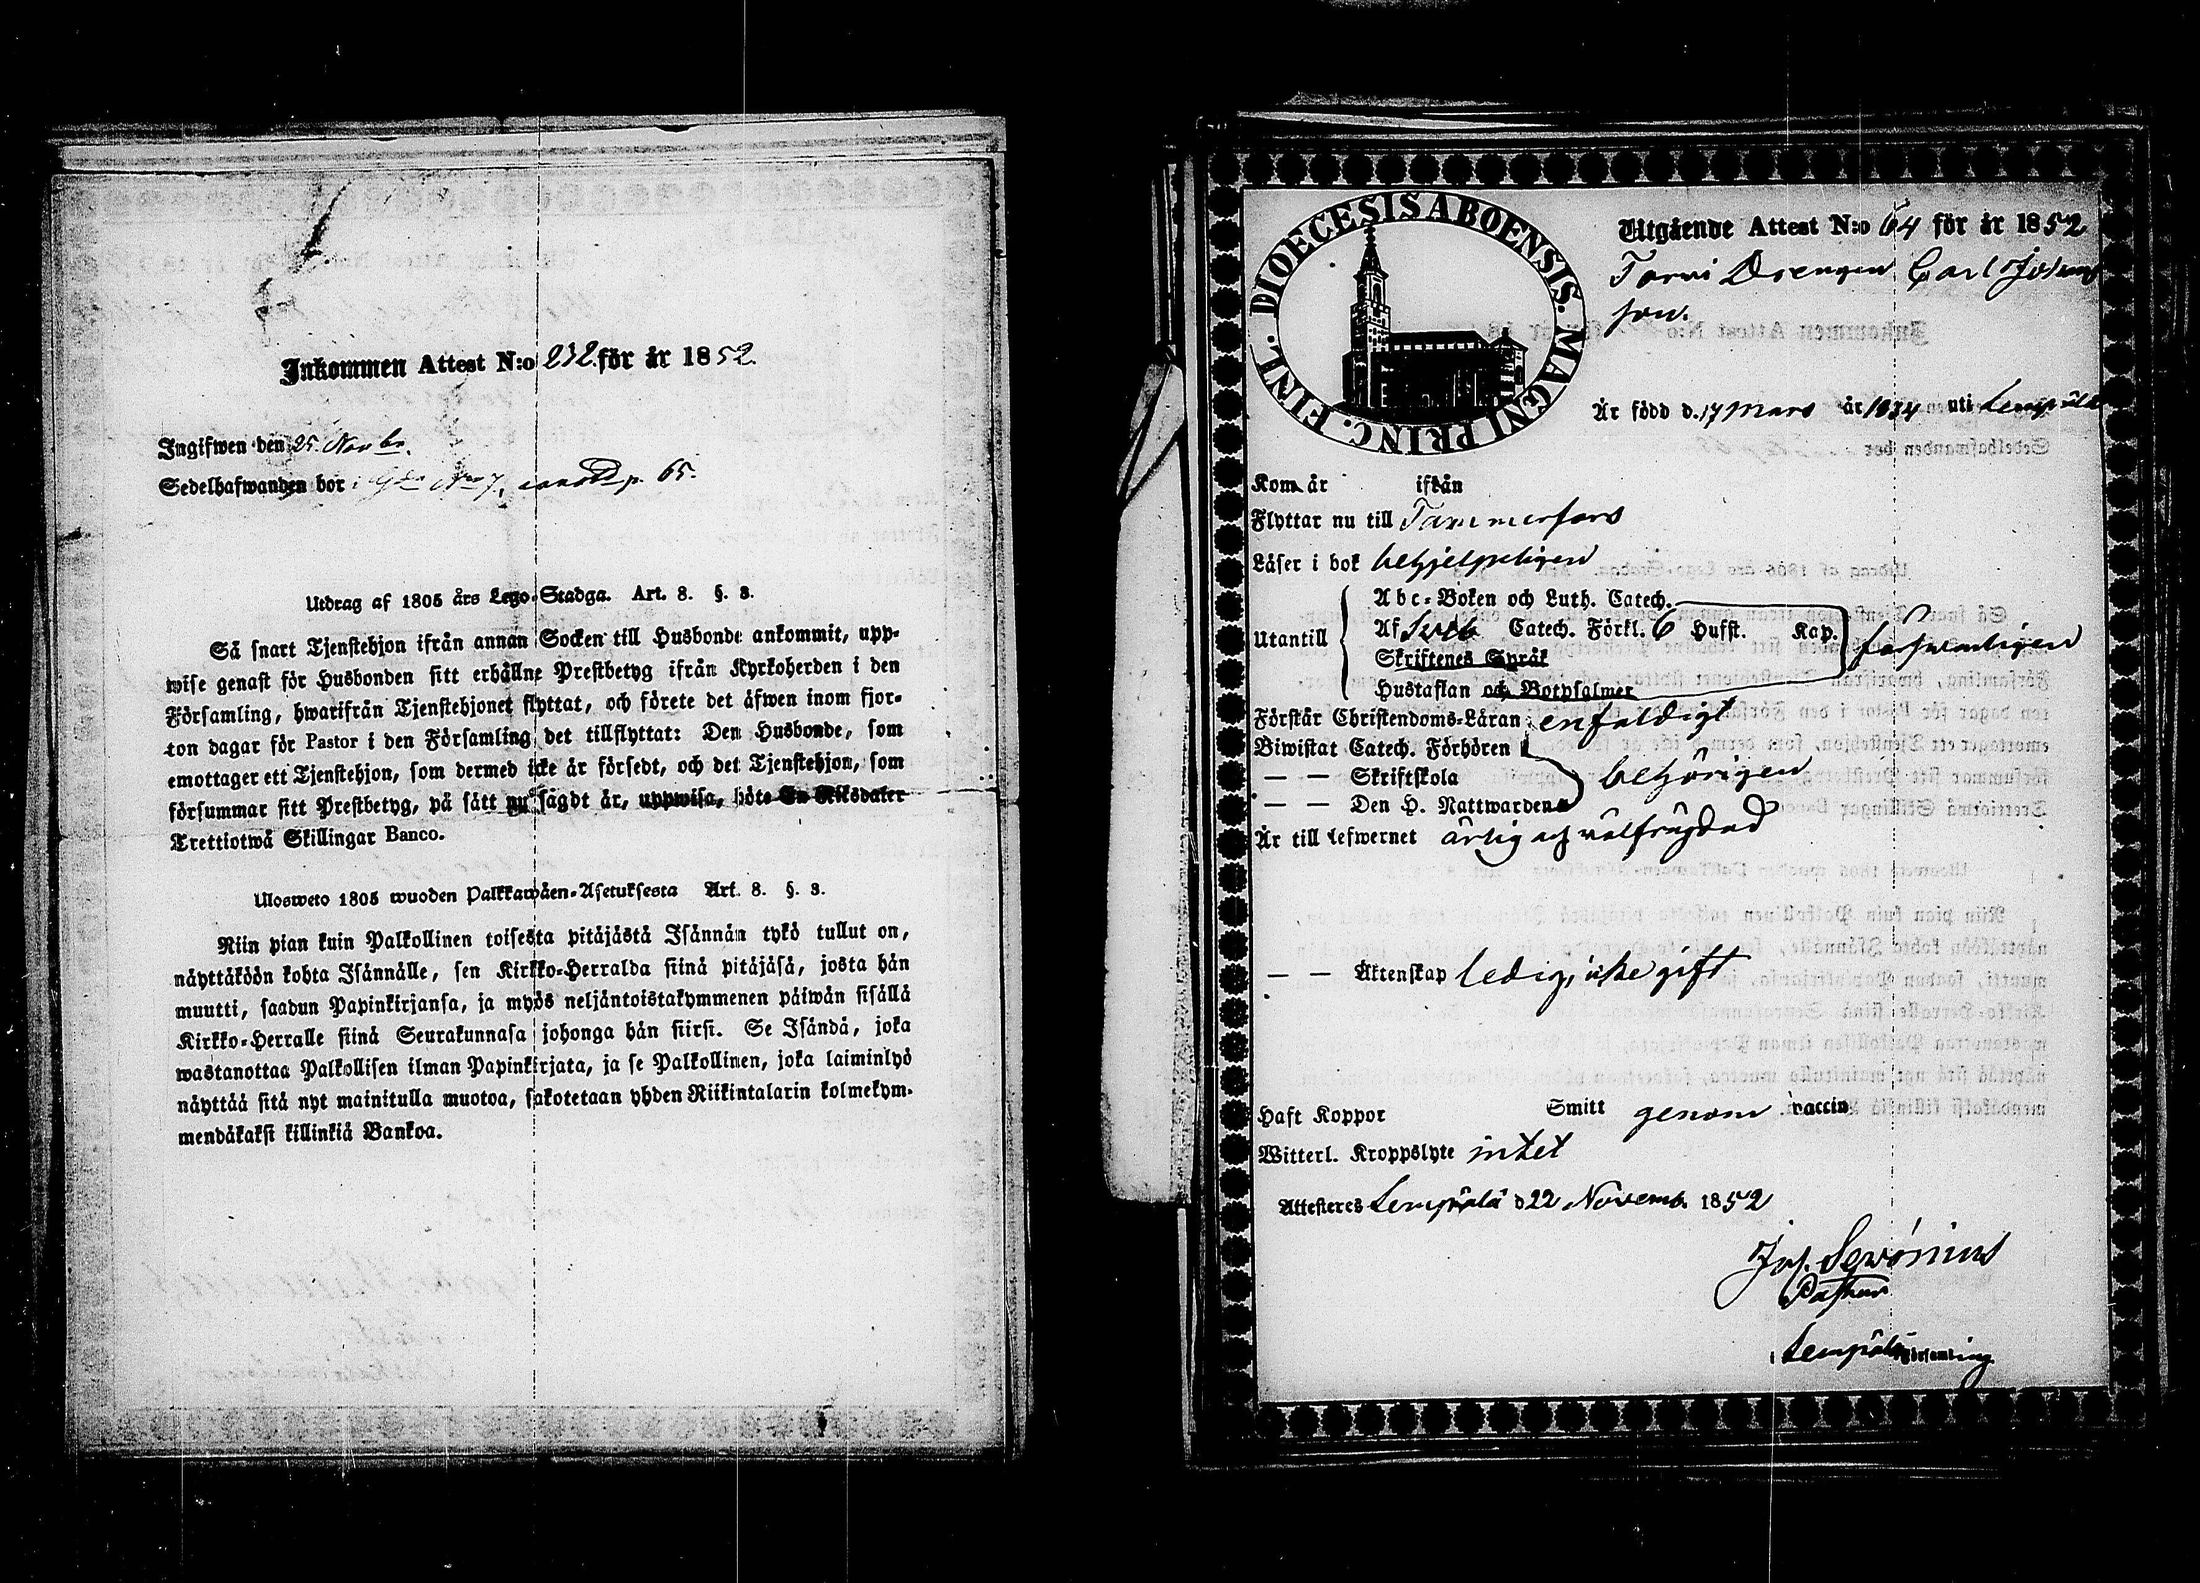 Inkommen Attest N:o 232. för år 1852.
Ingifwen den 25 Novbr.
Sedelhafwanden bor p. 65.
Utdrag af 1805 års Lego-Stadga. Art. 8. §. 3.
Så snart Tjenstehjon ifrån annan Socken till Husbonde ankommit, upp-
wise genast för Husbonden sitt erhållne Prestbetyg ifrån Kyrkoherden i den
Församling, hwarifrån Tjenstehjonet flyttat, och förete det äfwen inom fjor-
ton dagar för Pastor i den Församling det tillflyttat: Den Husbonde, som
emottager ett Tjenstehjon, som dermed icke är försedt, och det Tjenstehjon, som
försummar sitt Prestbetyg, på sätt nu sagdt är, uppwisa, böte En Riksdaler
Trettiotwå Skillingar Banco.
Ulosweto 1805 wuoden Palkkawäen-Asetuksesta Art. 8. §. 3.
Niin pian kuin Palkollinen toisesta pitäjästä Isännän tykö tullut on,
näyttäköön kohta Isännälle, sen Kirkko-Herralda siinä pitäjäsä, josta hän
muutti, saadun Papinkirjansa, ja myös neljäntoistakymmenen päiwän sisällä
Kirkko-Herralle siinä Seurakunnasa johonga hän siirsi. Se Isändä, joka
wastanottaa Palkollisen ilman Papinkirjata, ja se Palkollinen, joka laiminlyö
näyttää sitä nyt mainitulla muotoa, sakotetaan yhden Riikintalarin kolmekym-
mendäkaksi killinkiä Bankoa.
DIOECESIS ABOENSIS. MAGNI PRINC. FINL.
Utgående Attest N:o 64 för år 1852
Drengen Carl Johans
son.
Är född d. 17 Mars år 1834 uti Lempälä
Kom år ifrån
Flyttar nu till Tammerfors
Läser i bok behjelpeligen
Utantill
Abc-Boken och Luth. Catech.
Af Catech. Förkl. 6 Hufst. Kap.
Skriftenes Språk
Hustaflan och Botpsalmer
försvarligen
Förstår Christendoms-Läran enfaldigt
Biwistat Catech. Förhören
— — Skriftskola behörigen
— — Den H. Nattwarden
Är till lefwernet ärlig och välfrägdad
— — Äktenskap ledig, icke gift
Haft Koppor Smitt genom vaccin.
Witterl. Kroppslyte intet
Attesteres Lempälä d 22 Novemb. 1852
Jos. Servónius
Pastor
i Lempälä Församling